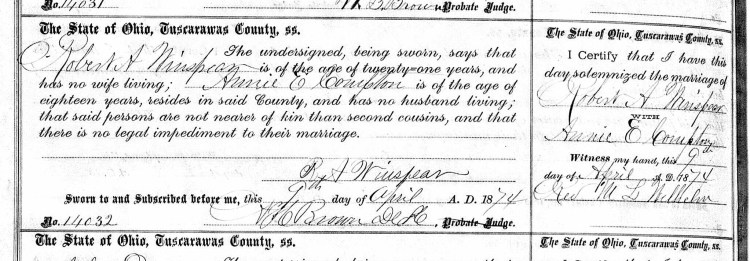 No. 14031 Brown Probate Judge.
The State of Ohio, Tuscarawas County, ss.
The undersigned, being sworn, says that
Robert A Winspear is of the age of twenty-one years, and
has no wife living; Annie E Compton is of the age of
eighteen years, resides in said County, and has no husband living;
that said persons are not nearer of kin than second cousins, and that
there is no legal impediment to their marriage.
R A Winspear
Sworn to and Subscribed before me, this 9th day of April A. D. 1874
No. 14032 Brown Probate Judge.
The State of Ohio, Tuscarawas County, ss.
The State of Ohio, Tuscarawas County, ss.
I Certify that I have this
day solemnized the marriage of
Robert A Winspear
WITH
Annie E Compton
Witness my hand, this 9
day of April A. D. 1874
Rev M L Wilhelm
The State of Ohio, Tuscarawas County, ss.